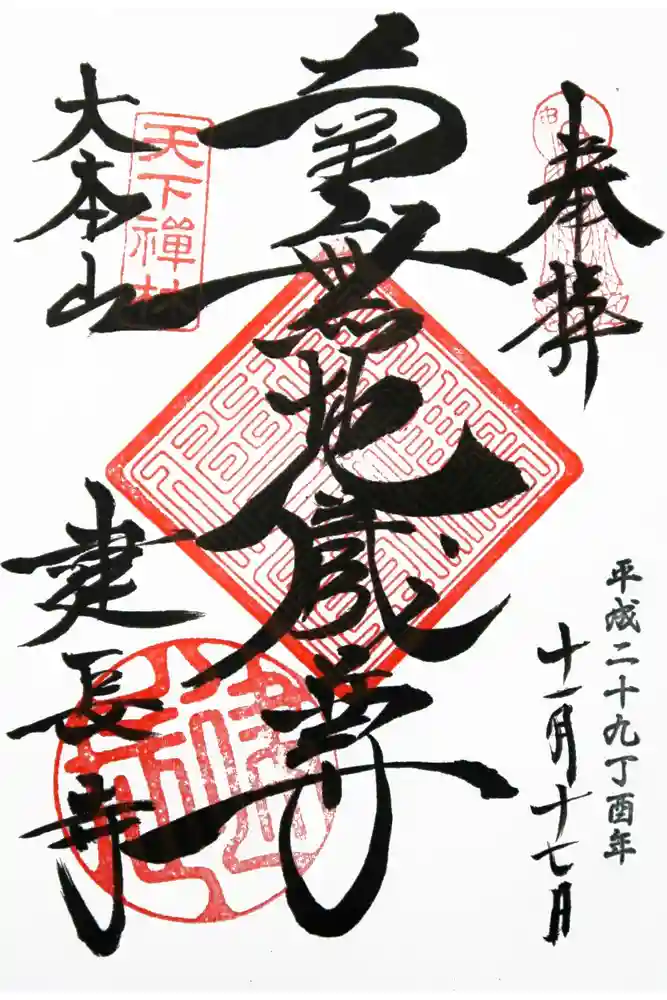 奉拝
平成二十九丁酉年
十一月十七日
南無地蔵尊
天下禪林
大本山
建長寺